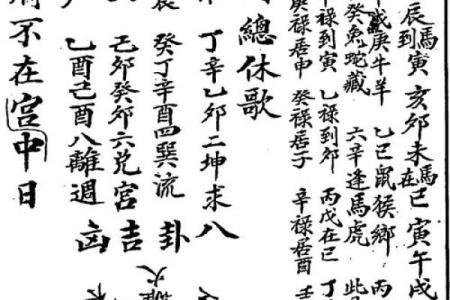 辰馬到寅 亥卯未馬在巳 寅午戌
庚牛羊 乙巳鼠猴鄉 丙
癸兔蛇藏 六辛逢馬虎 此
祿到寅 乙祿到卯 丙戊在巳 丁
庚祿居申 癸祿居子 辛祿居酉
總休歌
丁辛乙卯二坤求 八
癸丁辛酉四巽流 卦
己卯癸卯六兌宮 吉
乙酉己酉八離週 凶
不在宮中日